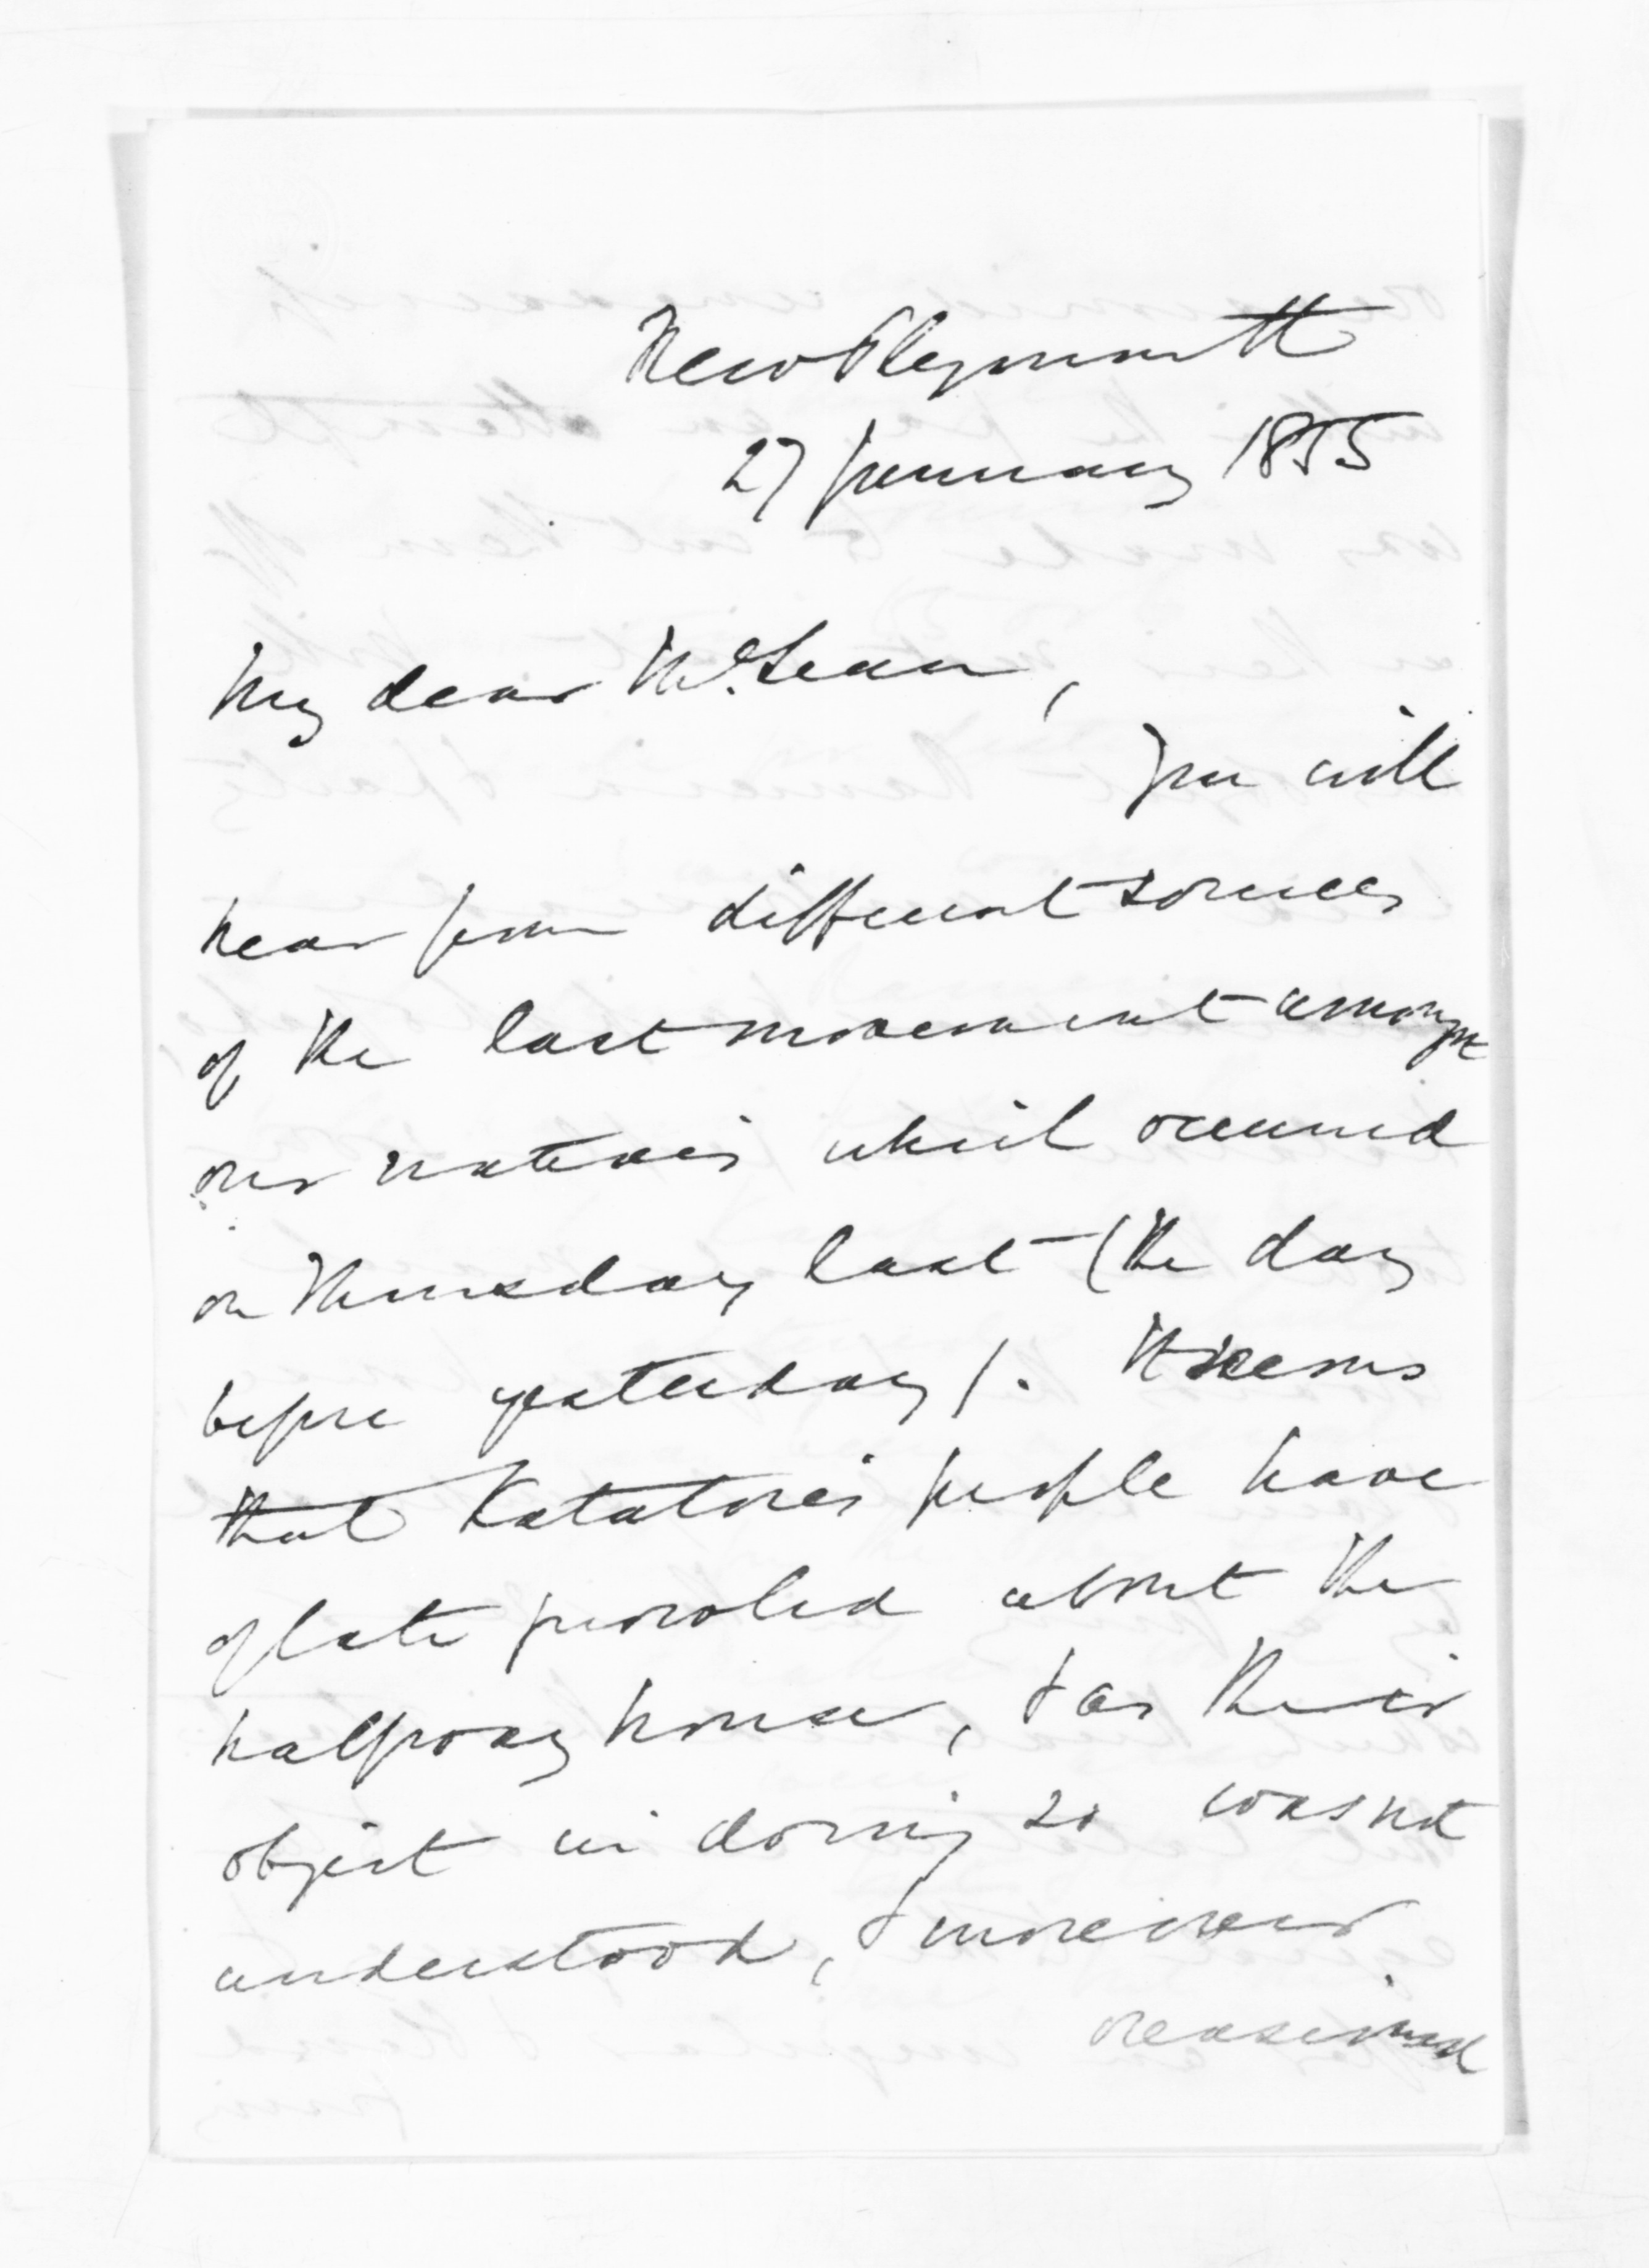 New Plymouth
27 January 1855
My dear McLean,
You will
hear from different sources
of the last movement amongst
our natives which occurred
on Thursday last (the day
before yesterday). It seems
that Katatore's people have
of late prowled about the
halfway house, & as their
object in doing so was not
understood, & moreover
occasioned